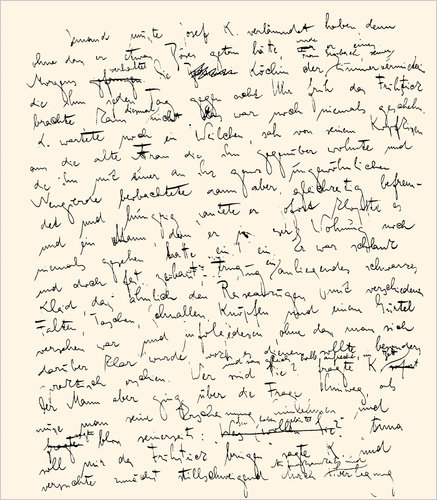 jemand musste Josef K. verläumdet haben, denn
ohne dass er etwas Böses getan hätte, wurde er eines
Morgens verhaftet. Die Köchin der Zimmervermieterin
die ihm jeden Tag gegen acht Uhr früh das Frühstück
brachte kam diesmal nicht. Das war noch niemals geschehn.
K. wartete noch ein Weilchen, sah von seinem Kopfkissen
aus die alte Frau die ihm gegenüber wohnte und
die ihn mit einer an ihr ganz ungewöhnlichen
Neugierde beobachtete dann aber, gleichzeitig befrem-
det und hungrig, läutete er. Sofort klopfte es
und ein Mann, den er in dieser Wohnung noch
niemals gesehen hatte trat ein. Er war schlank
und doch fest gebaut, er trug ein anliegendes schwarzes
Kleid, das ähnlich den Reiseanzügen mit verschiedenen
Falten, Taschen, Schnallen, Knöpfen und einem Gürtel
versehen war und infolgedessen, ohne dass man sich
darüber klar wurde, wozu es dienen sollte, besonders
praktisch erschien. Wer sind Sie? fragte K.
Der Mann aber ging über die Frage hinweg, als
müsse man seine Erscheinung hinnehmen und
sagte bloss seinerseits: Anna
soll mir das Frühstück bringen sagte K. und
versuchte zunächst stillschweigend durch Überlegung